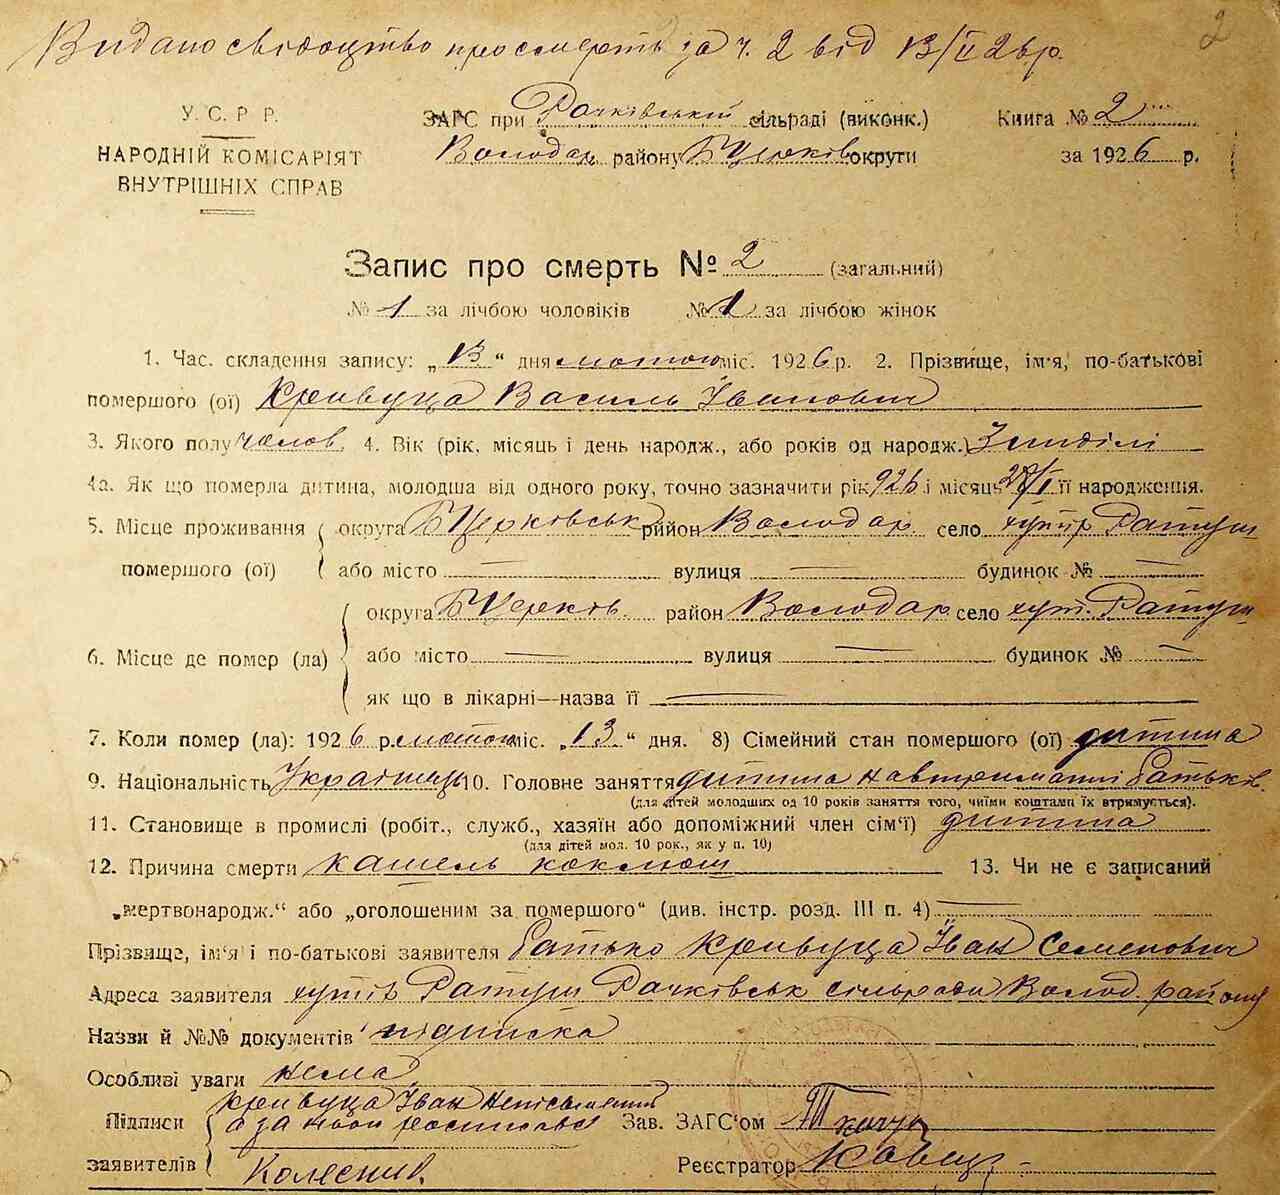 Видано свідоцтво про смерть за ч. 2 від 13/II 26 р.
2
У. С. Р. Р.
НАРОДНІЙ КОМІСАРІЯТ
ВНУТРІШНІХ СПРАВ
ЗАГС при Рачківський сільраді (виконк.)
Володар. району Б Церків округи
Книга № 2
за 1926 р.
Запис про смерть № 2 (загальний)
№ 1 за лічбою чоловіків № 1 за лічбою жінок
1. Час. складення запису: „13“ дня лютого міс. 1926 р. 2. Прізвище, ім'я, по-батькові
помершого (ої) Кривуца Василь Іванович
3. Якого полу чолов. 4. Вік (рік, місяць і день народж., або років од народж.) 3 неділі
4а. Як що померла дитина, молодша від одного року, точно зазначити рік 926 і місяць її народження.
5. Місце проживання помершого (ої) округа Б Церковськ рийон Володар. село хутір Ратуш
або місто — вулиця — будинок № —
6. Місце де помер (ла) округа Б Церков. район Володар село хут. Ратуш
або місто — вулиця — будинок № —
як що в лікарні—назва її —
7. Коли помер (ла): 1926 р. лютого міс. „13“ дня. 8) Сімейний стан помершого (ої) дитина
9. Національність Українець 10. Головне заняття дитина на втриманні батьків.
(для дітей молодших од 10 років заняття того, чиїми коштами їх втримується).
11. Становище в промислі (робіт., служб., хазяїн або допоміжний член сім'ї) дитина
(для дітей мол. 10 рок., як у п. 10)
12. Причина смерти кашель коклюш 13. Чи не є записаний
„мертвонародж.“ або „оголошеним за помершого“ (див. інстр. розд. III п. 4) —
Прізвище, ім'я і по-батькові заявителя батько Кривуца Іван Семенович
Адреса заявителя хутір Ратуш Рачківськ сільради Волод. району
Назви й №№ документів підписка
Особливі уваги нема
Підписи заявителів Кривуца Іван Неписьменний
а за нього росписався
Колесник.
Зав. ЗАГС'ом Ткачук
Реєстратор